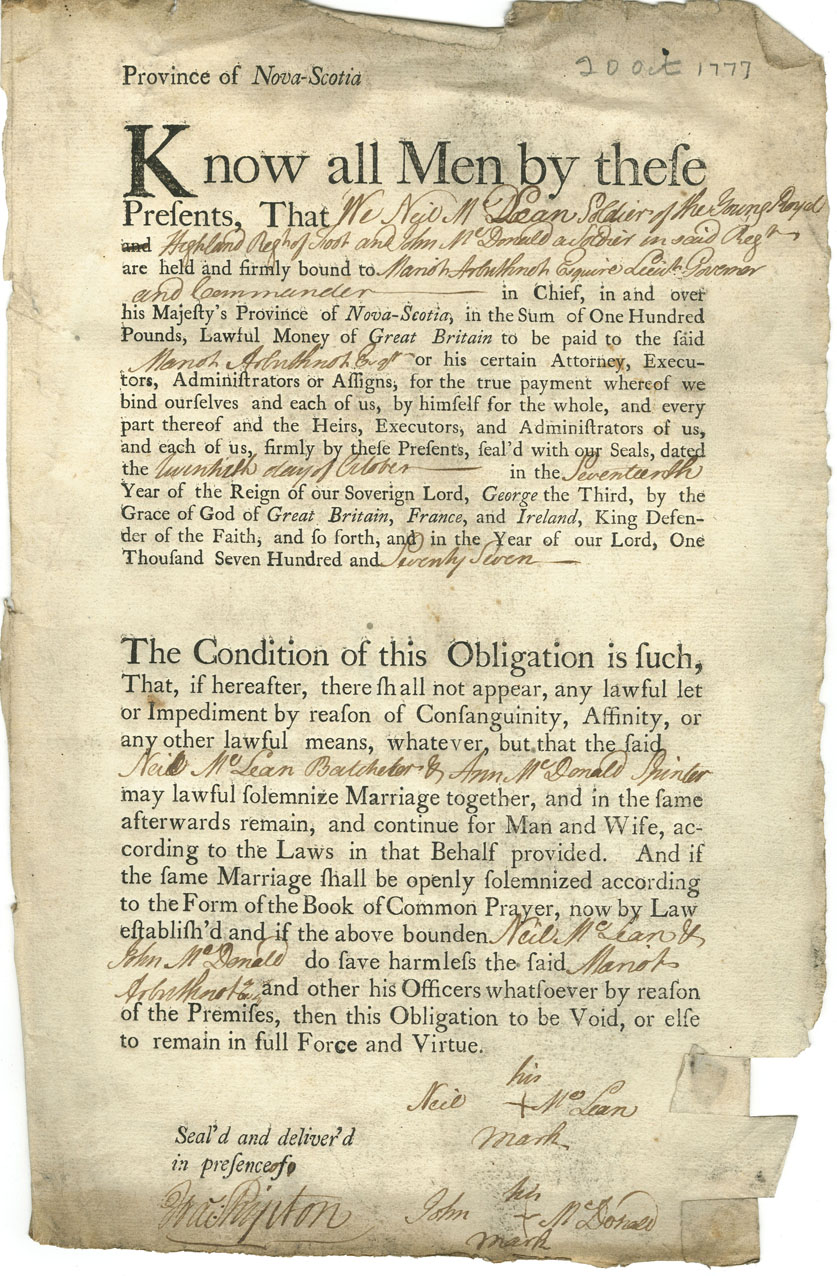 Province of Nova-Scotia
20 Oct 1777
Know all Men by theſe
Preſents, That We Neil Mc Lean Soldier of the Young Royal
and Highland Regt of Foot and John Mc Donald a Soldier in said Regt
are held and firmly bound to Mariot Arbuthnot Esquire Lieut. Governor
and Commander in Chief, in and over
his Majeſty's Province of Nova-Scotia, in the Sum of One Hundred
Pounds, Lawful Money of Great Britain to be paid to the ſaid
Mariot Arbuthnot Esqr or his certain Attorney, Execu-
tors, Adminiſtrators or Aſſigns; for the true payment whereof we
bind ourſelves and each of us, by himſelf for the whole, and every
part thereof and the Heirs, Executors, and Adminiſtrators of us,
and each of us, firmly by theſe Preſents, ſeal'd with our Seals, dated
the twentieth day of October in the Seventeenth
Year of the Reign of our Soverign Lord, George the Third, by the
Grace of God of Great Britain, France, and Ireland, King Defen-
der of the Faith, and ſo forth, and in the Year of our Lord, One
Thouſand Seven Hundred and Seventy Seven
The Condition of this Obligation is ſuch,
That, if hereafter, there ſhall not appear, any lawful let
or Impediment by reaſon of Conſanguinity, Affinity, or
any other lawful means, whatever, but that the ſaid
Neil Mc Lean Batcheler & Ann Mc Donald Spinster
may lawful ſolemnize Marriage together, and in the ſame
afterwards remain, and continue for Man and Wife, ac-
cording to the Laws in that Behalf provided. And if
the ſame Marriage ſhall be openly ſolemnized according
to the Form of the Book of Common Prayer, now by Law
eſtabliſh'd and if the above bounden Neil Mc Lean &
John Mc Donald do ſave harmleſs the ſaid Mariot
Arbuthnot and other his Officers whatſoever by reaſon
of the Premiſes, then this Obligation to be Void, or elſe
to remain in full Force and Virtue.
his
Neil + Mc Lean
mark
Seal'd and deliver'd
in preſence of
his
John + Mc Donald
mark